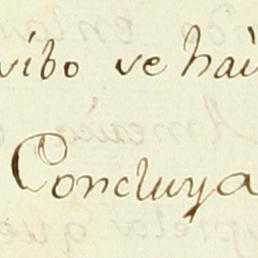 vibo ve hai
Concluya